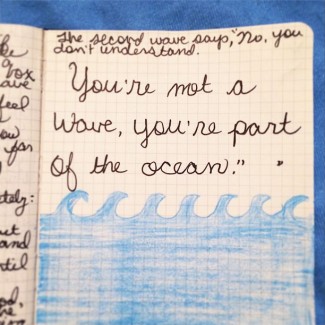 The second wave says, "No, you
don't understand.
You're not a
wave, you're part
of the ocean." "
ke
a
ox
ave
feel
ow
for
tely:
ut
and
til